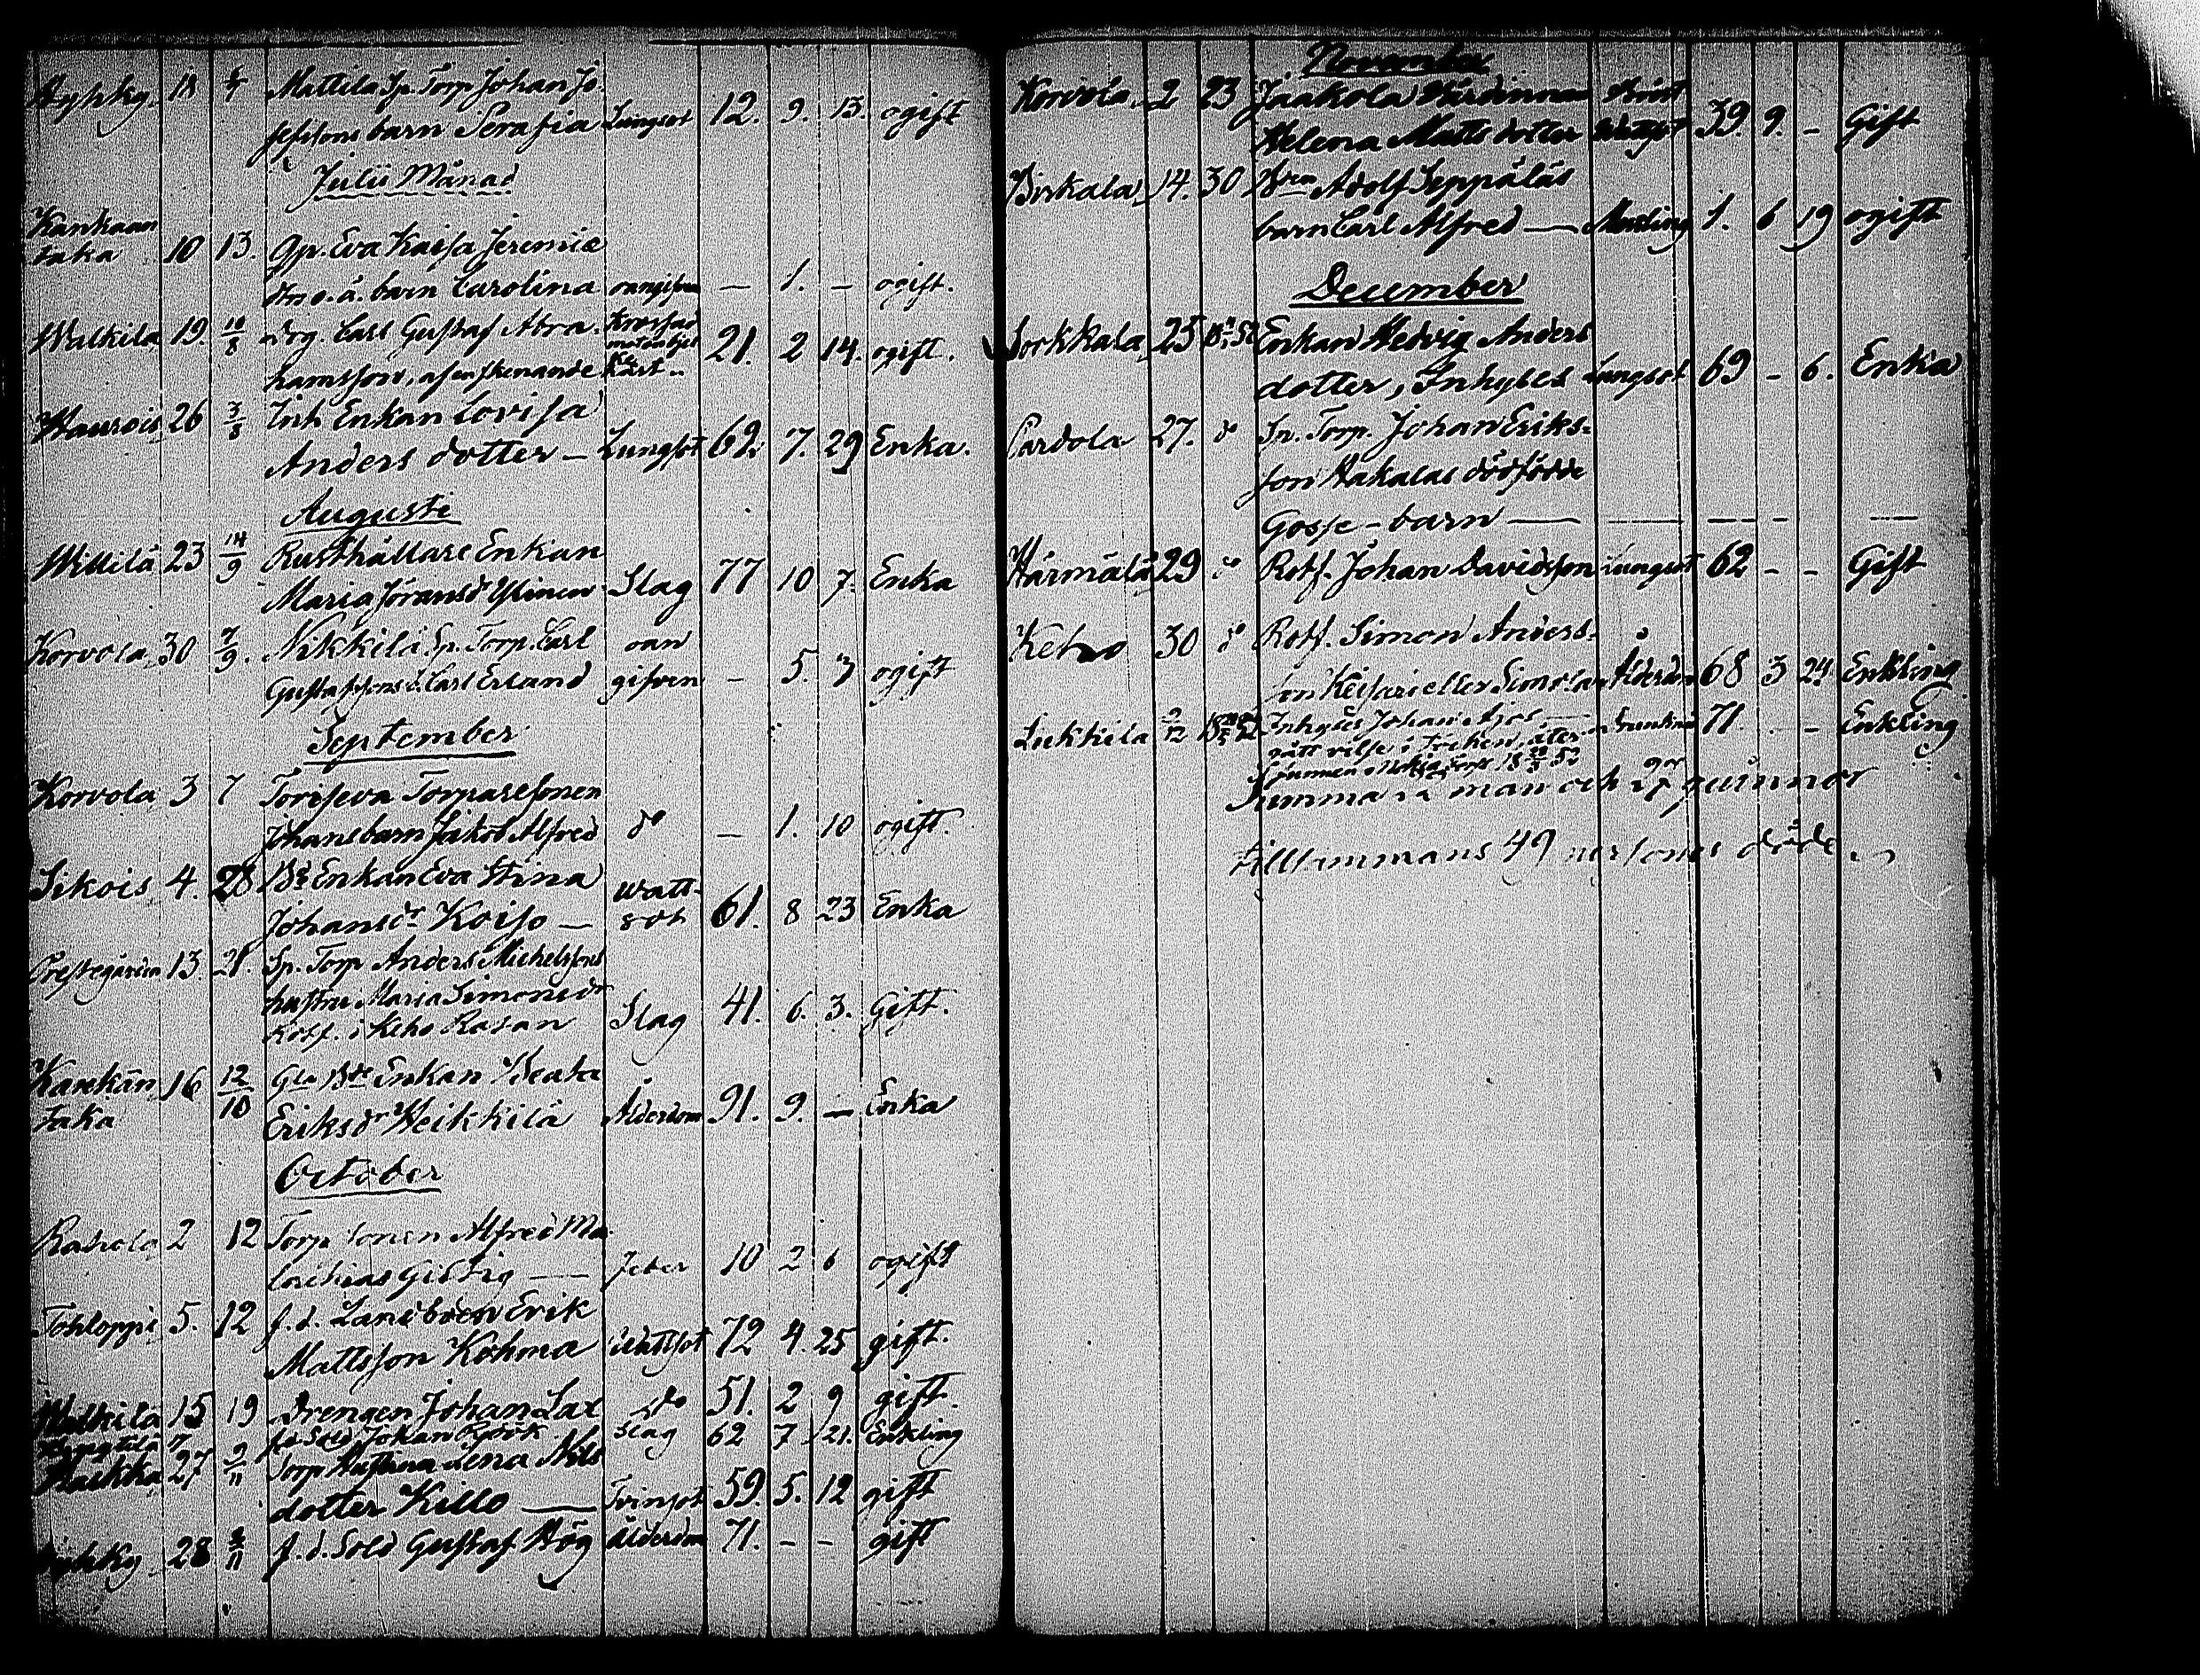 Hyhky 18 Mattila Sp. Torp Johan Jo-
sefssons barn Serafia Lungsot 12. 9. 13. ogift
Julii Månad
Kankaan
taka 10 13. Gp. Eva Kaisa Jeremiæ
dr o.ä. barn Carolina oangifven — 1. — ogift.
Walkila 19. 10/8 drg. Carl Gustaf Abra- Krossad
hamsson, af en skenande 21. 2 14. ogift.
Kärt..
Haurois 26 3/8 Inh Enkan Lovisa
Anders dotter — Lungsot 62. 7. 29 Enka.
Augusti
Willilä 23 14/9 Rusthållare Enkan
Maria Jöransd Slag 77 10 7. Enka
Korvola 30 7/9. Nikkilä Sp. Torp. Carl oan
Gustafssons s. Carl Erland gifven — 5. 7 ogift
September
Korvola 3 7 Torpare sonen
Johans barn Jakob Alfred do — 1. 10 ogift.
Sikois 4. 28 Bd Enkan Eva Stina watt-
Johansdr Koiso — sot 61. 8 23 Enka
Prestegården 13. 21. Sp. Torp Anders Michelssons
hustru Maria Simonsdr
Rotf. i Keho Rasan Slag 41. 6. 3. Gift.
Kankan 16 12/10 Gla Bde Enkan Beata
taka Eriksdr Heikkilä Ålderdom 91. 9. — Enka
October
Rahola 2 12 Torp sonen Alfred Ma-
lachias Gistig — feber 10 2 6 ogift
Tohloppi 5. 12 f.d. Landboen Erik
Mattsson Kohma Wattsot 72 4. 25 gift.
Walkila 15 19 Drengen Johan Lax do 51. 2 9 gift.
fd Sold Johan slag 62 7 21. Enkling
27 9/11 Torp Hustrun Lena Nils
dotter Killo — Tvinsot 59. 5. 12 gift
Hyhky 28 f.d. Sold Gustaf Hög Ålderdom 71. – – gift
November
Korvola 2 23 Jaakola Wärdinnan Bröst
Helena Matts dotter Wattsot 39. 9. – Gift
Birkala 14. 30 Bden Adolf Seppäläs
barn Carl Alfred — Messling 1. 6 19 ogift
December
Sorkkala 25 Enkan Hedvig Anders
dotter, Inhyses Lungsot 69 – 6. Enka
Pardola 27. do Sp. Torp. Johan Eriks-
son Hakalas dödfödde
Gosse-barn — — — – —
Härmälä 29 do Rotf. Johan Davidsson Lungsot 62 – – Gift
Keho 30 do Rotf. Simon Anders-
son Keisari eller Simola Ålderdom 68 3 24 Enkling
Liekkila Inhyses Johan — 71. – Enkling
gått vilse i
funnen
Summa man och 27 quinnor
tillsammans 49 personer döde